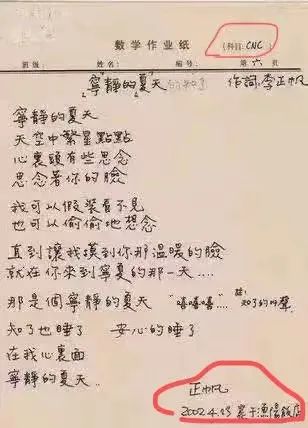 数学作业纸 (科目:CNC)
班级: 姓名: 编号: 第 六 页
"寧靜的夏"天 的知了 作詞:李正帆
寧靜的夏天
天空中繁星點點
心裏頭有些思念
思念著你的臉
我可以假裝看不見
也可以偷偷地想念
直到讓我摸到你那溫暖的臉
就在你來到寧夏的那一天....
那是個寧靜的夏天 "嘻嘻嘻" 註: 知了的叫聲
知了也睡了 安心的睡了
在我心裏面
寧靜的夏天..
正帆
2002 4.13